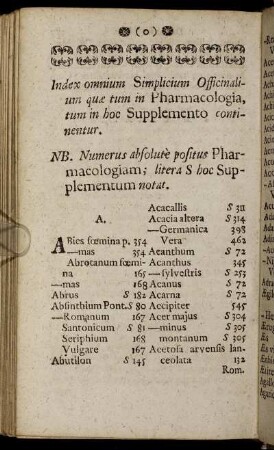 (o)
Index omnium Simplicium Officinali-
ium quæ tum in Pharmacologia,
tum in hoc Supplemento conti-
nentur.
NB. Numerus absolutè positus Phar-
macologiam; litera S hoc Sup-
plementum notat.
A.
ABies fœmina p. 354
—mas 354
Abrotanum fœmi-
na 165
—mas 168
Abrus S 182
Absinthium Pont. S 80
—Romanum 167
Santonicum S 81
Seriphium 168
Vulgare 167
Abutilon S 145
Acacallis S 311
Acacia altera S 314
—Germanica 398
Vera 462
Acanthum S 72
Acanthus 345
—sylvestris S 253
Acanus S 72
Acarna S 72
Accipiter 545
Acer majus S 304
—minus S 305
montanum S 305
Acetosa arvensis lan-
ceolata 132
Rom.